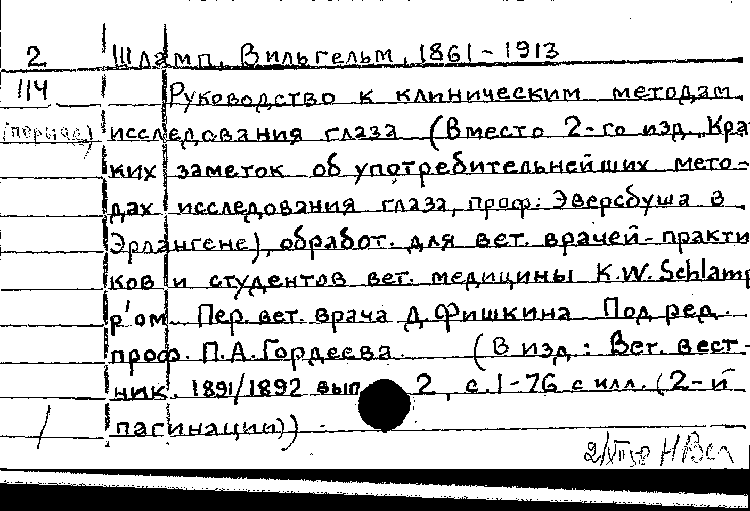 2 Шламп, Вильгельм, 1861-1913
114 Руководство к клиническим методам
(период) исследования глаза (Вместо 2-го изд. „Крат
ких заметок об употребительнейших мето-
дах исследования глаза, проф. Эверсбуша в
Эрлангене), обработ. для вет. врачей-практи
ков и студентов вет. медицины K.W. Schlamp
р'ом. Пер. вет. врача Д. Фишкина Под ред.
проф. П.А. Гордеева (В изд.: Вет. вест-
ник. 1891/1892 вып. 2, с. 1-76 с илл. (2-й
пагинации))